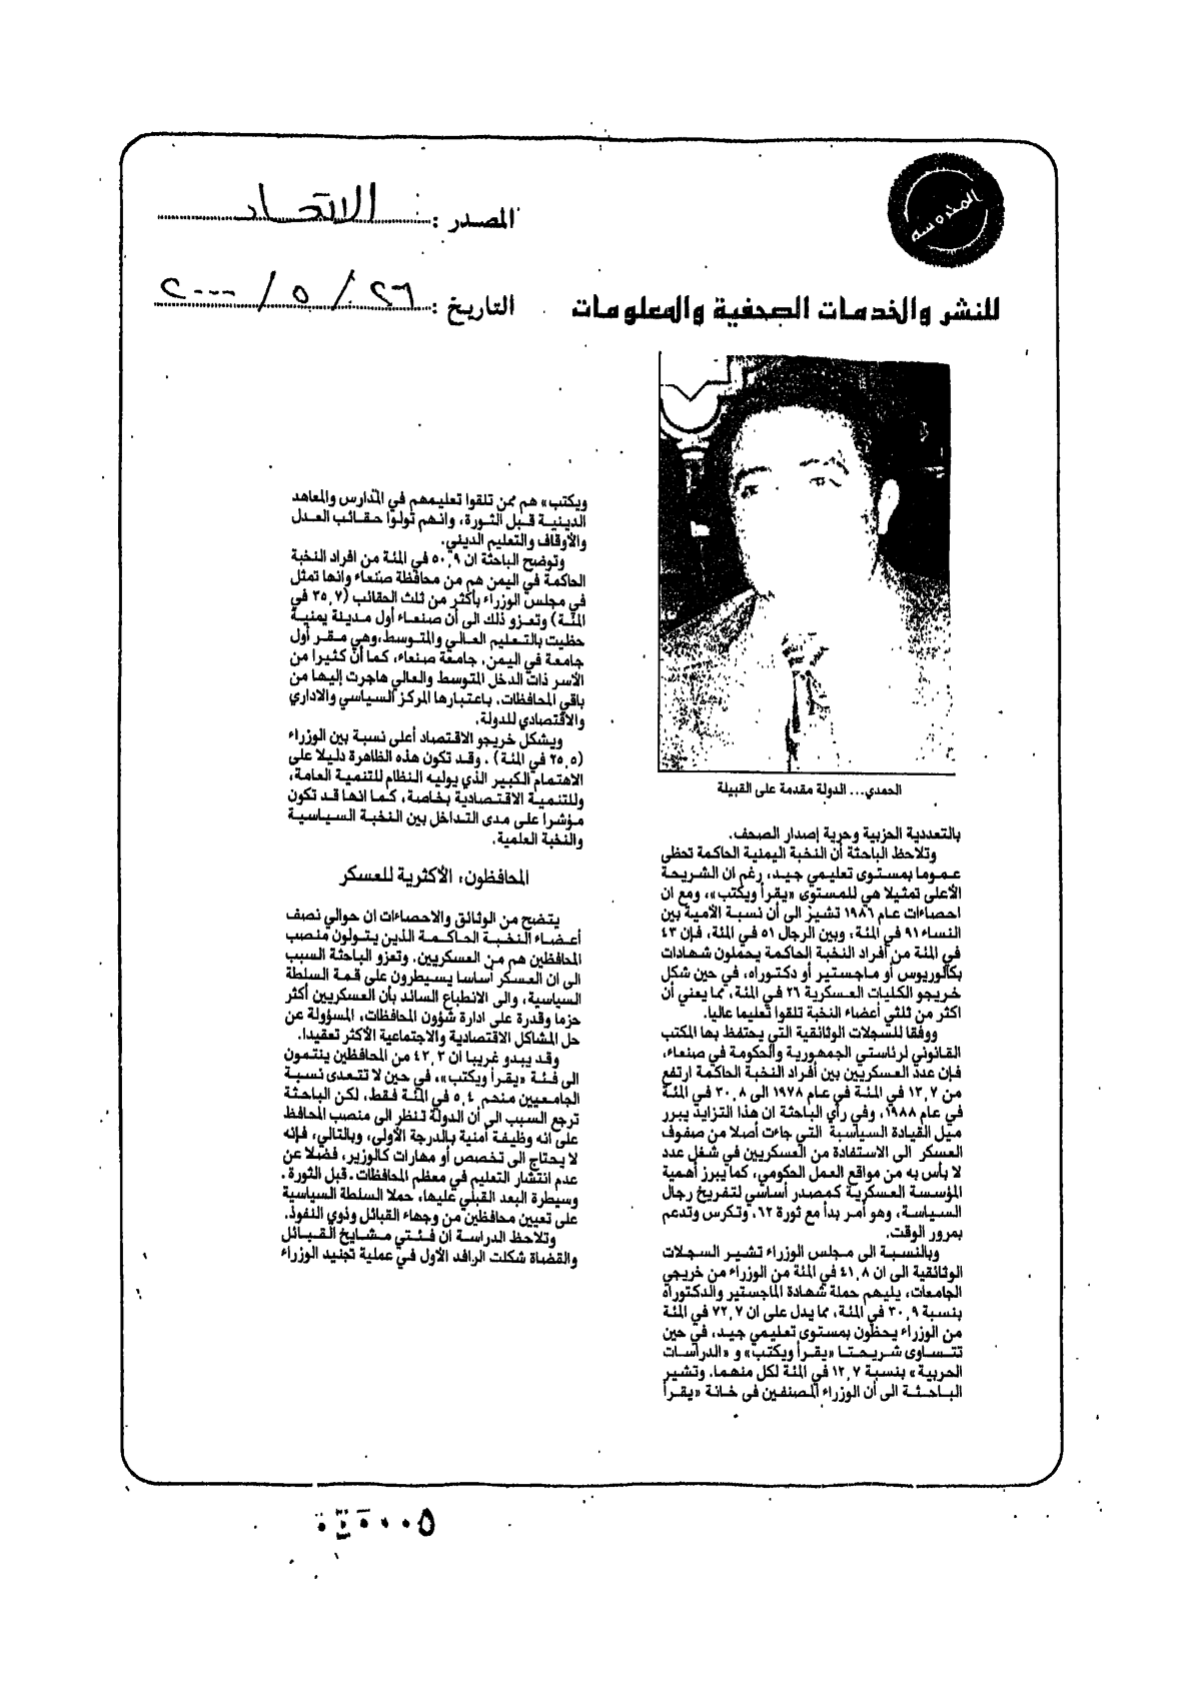 المحروسة
المصدر : الاتحاد
للنشر والخدمات الصحفية والمعلومات
التاريخ : ٢٦ / ٥ / ٢٠٠٠
الحمدي... الدولة مقدمة على القبيلة
بالتعددية الحزبية وحرية إصدار الصحف.
وتلاحظ الباحثة أن النخبة اليمنية الحاكمة تحظى
عموما بمستوى تعليمي جيد، رغم ان الشريحة
الأعلى تمثيلا هي للمستوى «يقرأ ويكتب»، ومع ان
احصاءات عام ١٩٨٦ تشير الى أن نسبة الأمية بين
النساء ٩١ في المئة، وبين الرجال ٥١ في المئة، فإن ٤٣
في المئة من أفراد النخبة الحاكمة يحملون شهادات
بكالوريوس أو ماجستير أو دكتوراه، في حين شكل
خريجو الكليات العسكرية ٢٦ في المئة، مما يعني أن
اكثر من ثلثي أعضاء النخبة تلقوا تعليما عاليا.
ووفقا للسجلات الوثائقية التي يحتفظ بها المكتب
القانوني لرئاستي الجمهورية والحكومة في صنعاء،
فإن عدد العسكريين بين أفراد النخبة الحاكمة ارتفع
من ١٣,٧ في المئة في عام ١٩٧٨ الى ٣٠,٨ في المئة
في عام ١٩٨٨، وفي رأي الباحثة ان هذا التزايد يبرر
ميل القيادة السياسية التي جاءت أصلا من صفوف
العسكر الى الاستفادة من العسكريين في شغل عدد
لا بأس به من مواقع العمل الحكومي، كما يبرز أهمية
المؤسسة العسكرية كمصدر أساسي لتفريخ رجال
السياسة، وهو أمر بدأ مع ثورة ٦٢، وتكرس وتدعم
بمرور الوقت.
وبالنسبة الى مجلس الوزراء تشير السجلات
الوثائقية الى ان ٤١,٨ في المئة من الوزراء من خريجي
الجامعات، يليهم حملة شهادة الماجستير والدكتوراه
بنسبة ٣٠,٩ في المئة، مما يدل على ان ٧٢,٧ في المئة
من الوزراء يحظون بمستوى تعليمي جيد، في حين
تتساوى شريحتا «يقرأ ويكتب» و «الدراسات
الحربية» بنسبة ١٢,٧ في المئة لكل منهما. وتشير
الباحثة الى أن الوزراء المصنفين في خانة «يقرأ
ويكتب» هم ممن تلقوا تعليمهم في المدارس والمعاهد
الدينية قبل الثورة، وانهم تولوا حقائب العدل
والأوقاف والتعليم الديني.
وتوضح الباحثة ان ٥٠,٩ في المئة من افراد النخبة
الحاكمة في اليمن هم من محافظة صنعاء وانها تمثل
في مجلس الوزراء بأكثر من ثلث الحقائب (٣٥,٧ في
المئة) وتعزو ذلك الى أن صنعاء أول مدينة يمنية
حظيت بالتعليم العالي والمتوسط، وهي مقر أول
جامعة في اليمن، جامعة صنعاء، كما أن كثيرا من
الأسر ذات الدخل المتوسط والعالي هاجرت إليها من
باقي المحافظات، باعتبارها المركز السياسي والاداري
والاقتصادي للدولة.
ويشكل خريجو الاقتصاد أعلى نسبة بين الوزراء
(٢٥,٥ في المئة) . وقد تكون هذه الظاهرة دليلا على
الاهتمام الكبير الذي يوليه النظام للتنمية العامة،
وللتنمية الاقتصادية بخاصة، كما انها قد تكون
مؤشرا على مدى التداخل بين النخبة السياسية
والنخبة العلمية.
المحافظون، الأكثرية للعسكر
يتضح من الوثائق والاحصاءات ان حوالي نصف
أعضاء النخبة الحاكمة الذين يتولون منصب
المحافظين هم من العسكريين. وتعزو الباحثة السبب
الى ان العسكر أساسا يسيطرون على قمة السلطة
السياسية، والى الانطباع السائد بأن العسكريين أكثر
حزما وقدرة على ادارة شؤون المحافظات، المسؤولة عن
حل المشاكل الاقتصادية والاجتماعية الأكثر تعقيدا.
وقد يبدو غريبا ان ٤٢,٣ من المحافظين ينتمون
الى فئة «يقرأ ويكتب»، في حين لا تتعدى نسبة
الجامعيين منهم ٥,٤ في المئة فقط، لكن الباحثة
ترجع السبب الى أن الدولة تنظر الى منصب المحافظ
على انه وظيفة أمنية بالدرجة الأولى، وبالتالي، فإنه
لا يحتاج الى تخصص أو مهارات كالوزير، فضلا عن
عدم انتشار التعليم في معظم المحافظات . قبل الثورة .
وسيطرة البعد القبلي عليها، حملا السلطة السياسية
على تعيين محافظين من وجهاء القبائل وذوي النفوذ.
وتلاحظ الدراسة ان فئتي مشايخ القبائل
والقضاة شكلت الرافد الأول في عملية تجنيد الوزراء